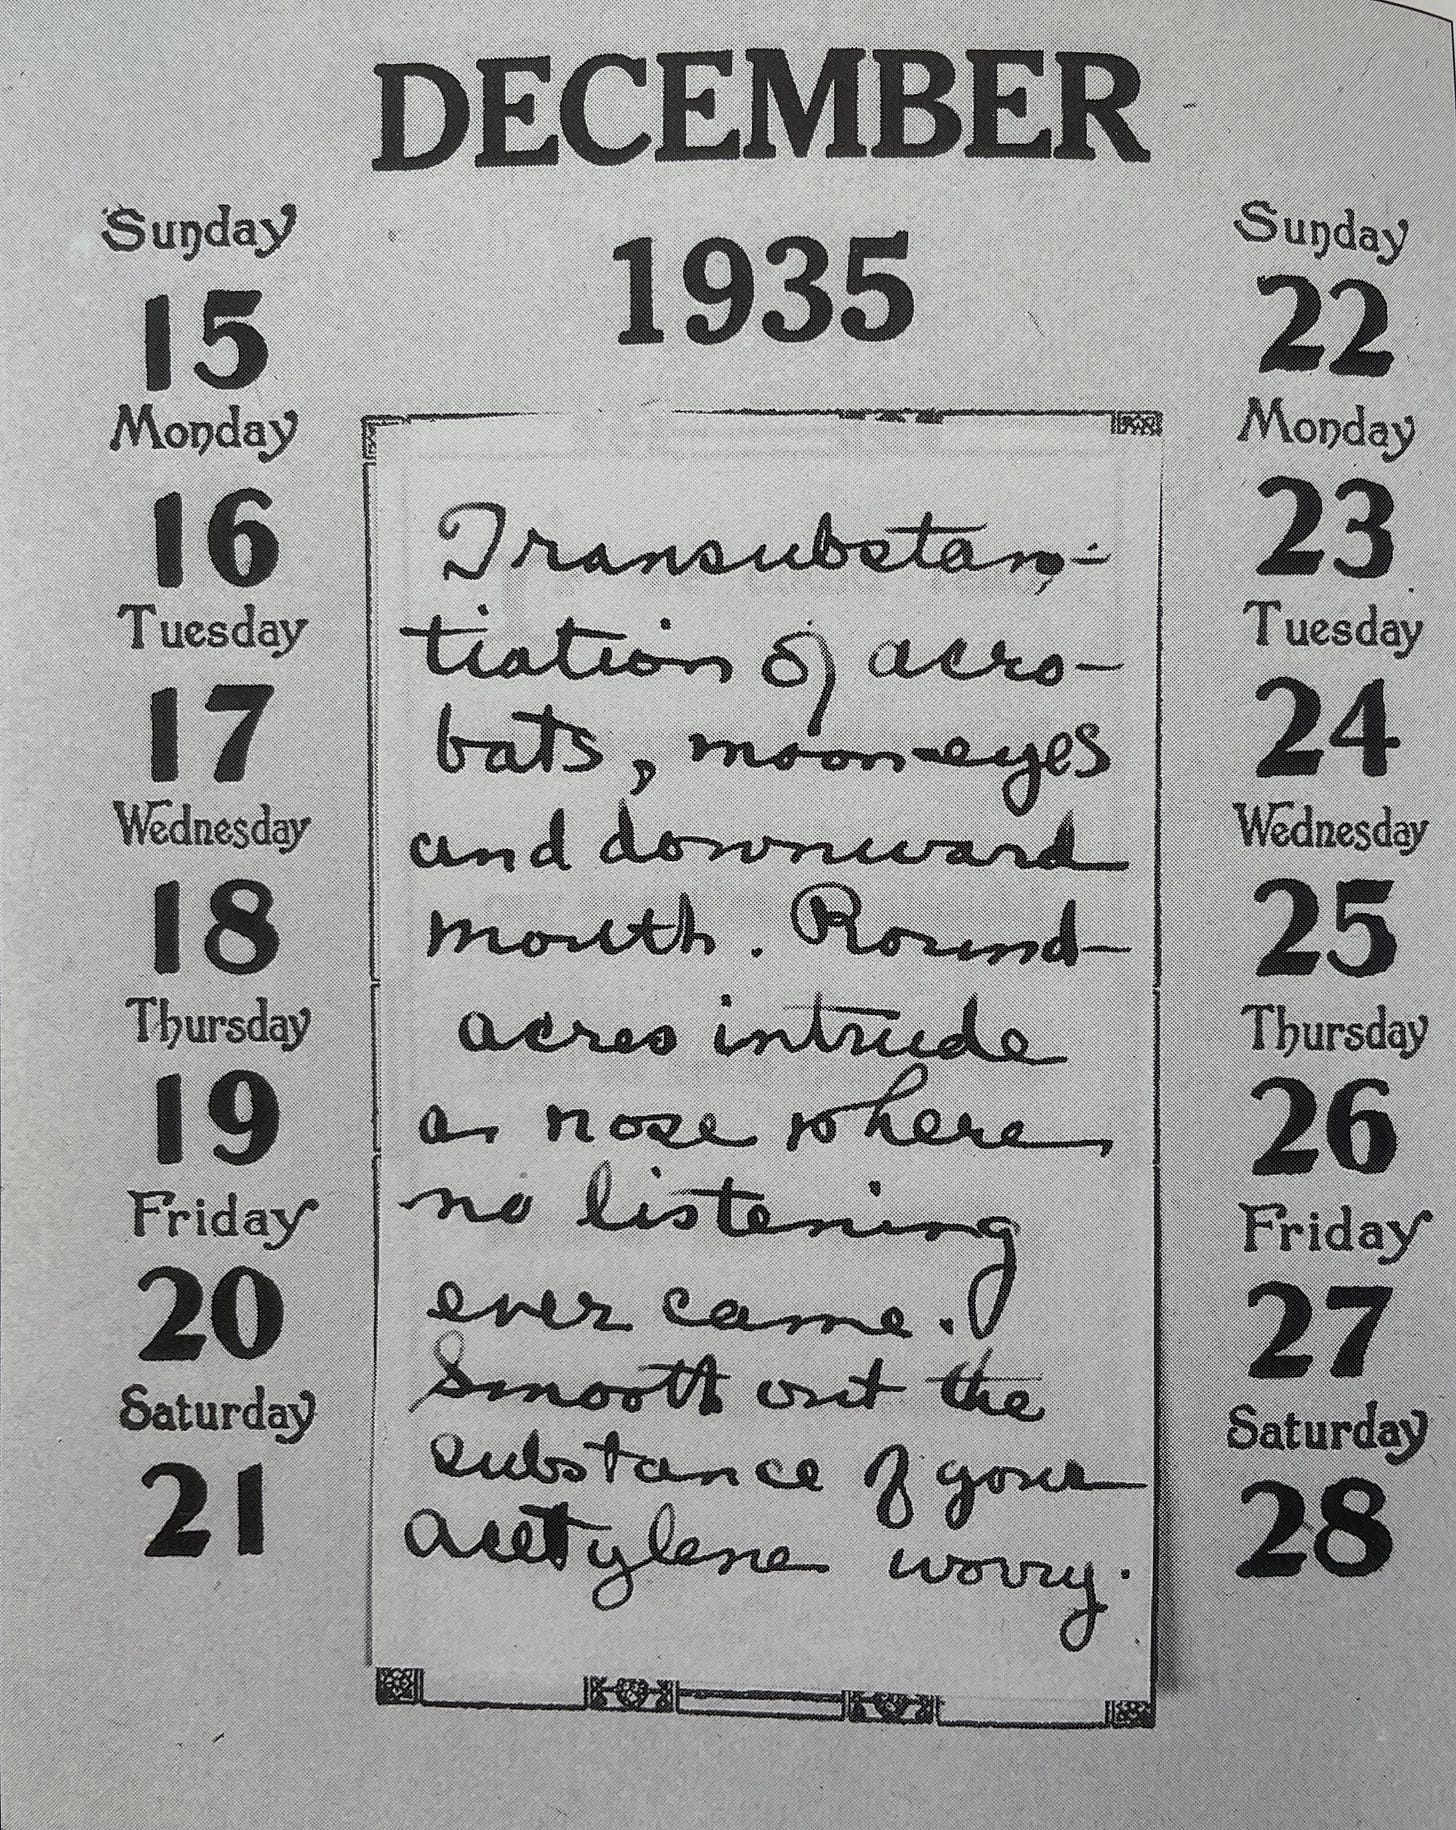 DECEMBER
1935
Sunday
15
Monday
16
Tuesday
17
Wednesday
18
Thursday
19
Friday
20
Saturday
21
Transubstan-
tiation of acro-
bats, moon-eyes
and downward
mouth. Round
acres intrude
a nose where
no listening
ever came.
Smooth out the
substance of your
acetylene worry.
Sunday
22
Monday
23
Tuesday
24
Wednesday
25
Thursday
26
Friday
27
Saturday
28